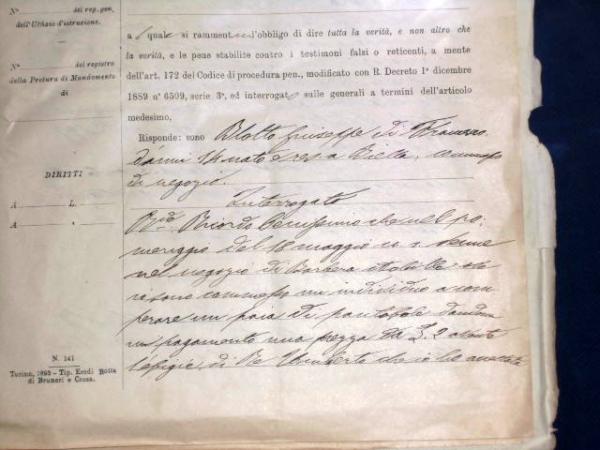 N° del reg. gen.
dell'Ufficio d'istruzione.
N° del registro
della Pretura di Mandamento
di
DIRITTI
A L.
A
N. 141
Torino, 1895 - Tip. Eredi Botta
di Bruneri e Crosa.
a l quale si rammenta l'obbligo di dire tutta la verità, e non altro che
la verità, e le pene stabilite contro i testimoni falsi o reticenti, a mente
dell'art. 172 del Codice di procedura pen., modificato con R. Decreto 1° dicembre
1889 n° 6509, serie 3ª, ed interrogato sulle generali a termini dell'articolo
medesimo,
Risponde: sono Blotto Giuseppe di Francesco
d'anni 14 nato e res. a Biella, commesso
di negozio.
Interrogato
Ricordo benissimo che nel po-
meriggio del 18 maggio u. s. venne
nel negozio di Barbera
sono commesso un individuo a com-
perare un paia di pantofole dandomi
in pagamento una pezza da L. 2
l'effigie di Re Umberto che io ho accettata